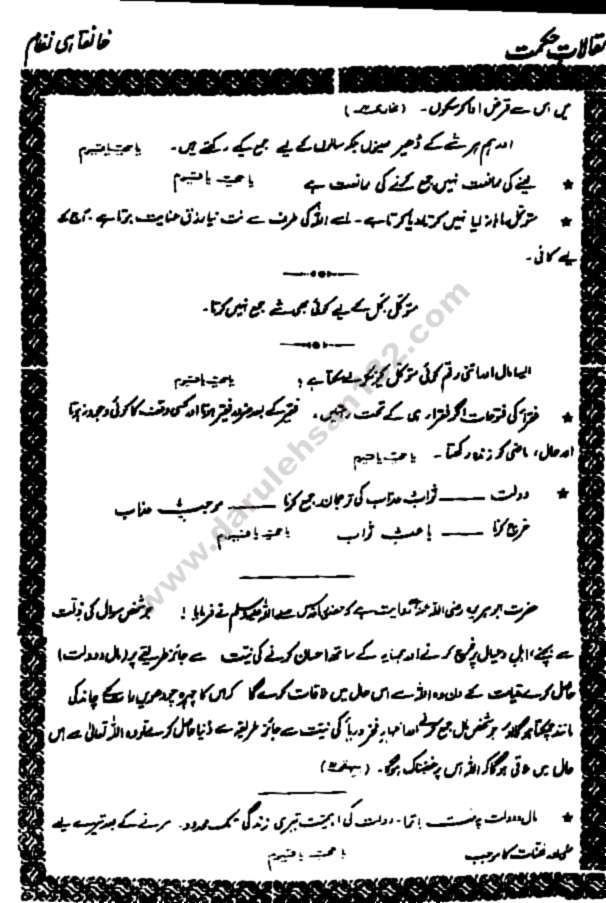 مقالاتِ حکمت
خانقاہی نظام
میں اس سے قرض ادا کر سکوں۔ (بخاری)
اور ہم ہر شے کے ڈھیر مہینوں بلکہ سالوں کے لیے جمع کیے رکھتے ہیں۔ یا حیّ یا قیوم
★ لینے کی ممانعت نہیں جمع کرنے کی ممانعت ہے یا حیّ یا قیوم
★ متوکل مانگ لیا نہیں کرتا، دیا کرتا ہے۔ اسے اللہ کی طرف سے نت نیا رزق عنایت ہوتا ہے، آج کے
لیے کافی۔
متوکل کل کے لیے کوئی بھی شے جمع نہیں کرتا۔
ایسا مال اور اتنی رقم کوئی متوکل کیونکر لے سکتا ہے؟ یا حیّ یا قیوم
★ فقرأ کی فتوحات اگر فقرأ ہی کے تحت رہتیں، فقیر کے بعد ضرور فقیر ہوتا اور کسی وقف کا کوئی وجود نہ ہوتا
اور حال، ماضی کو زندہ رکھتا۔ یا حیّ یا قیوم
★ دولت —— ثواب و عذاب کی ترجمان، جمع کرنا —— موجبِ عذاب
خرچ کرنا —— باعثِ ثواب یا حیّ یا قیوم
حضرت ابوہریرہ رضی اللہ عنہ سے روایت ہے کہ حضور اقدس صلے اللہ علیہ وسلم نے فرمایا! جو شخص سوال کی ذلت
سے بچنے، اہل و عیال پر خرچ کرنے اور ہمسایہ کے ساتھ احسان کرنے کی نیت سے جائز طریقے پر (مال و دولت)
حاصل کرے، قیامت کے دن وہ اللہ سے اس حال میں ملاقات کرے گا کہ اس کا چہرہ چودھویں رات کے چاند کی
مانند چمکتا ہوگا اور جو شخص مال جمع کرنے اور اظہارِ فخر و ریا کی نیت سے جائز طریقہ سے دُنیا حاصل کرے تو وہ اللہ تعالیٰ سے اس
حال میں ملاقی ہوگا کہ اللہ اس پر غضبناک ہوگا۔ (بیہقی)
★ مال و دولت پہ مت اترا۔ دولت کی اہمیت تیری زندگی تک محدود۔ مرنے کے بعد تیرے لیے
کا موجب یا حیّ یا قیوم
www.darulehsan122.com